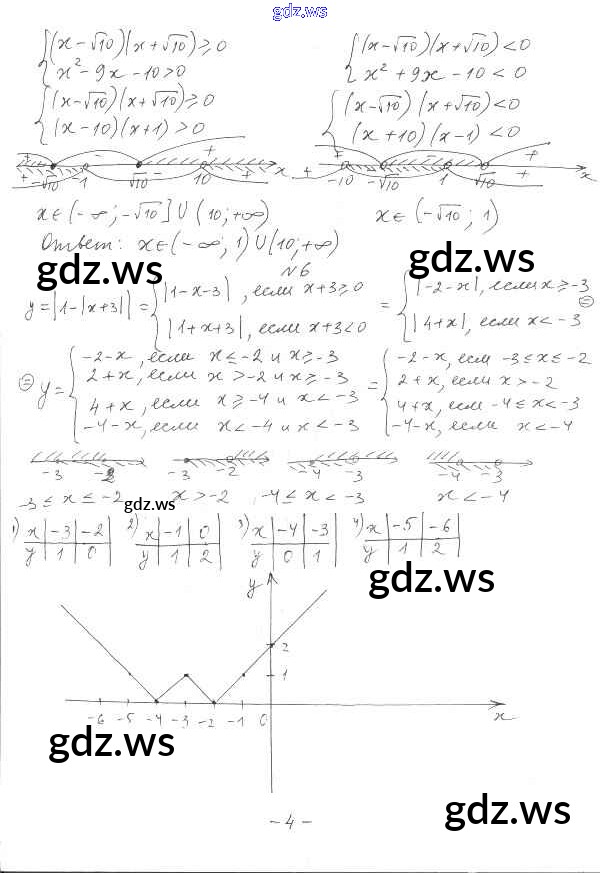 gdz.ws
{(x-√10)(x+√10)≥0
{x²-9x-10>0
{(x-√10)(x+√10)≥0
{(x-10)(x+1)>0
+ - +
+ -√10 -1 √10 10 + x
x∈(-∞;-√10]∪(10;+∞)
{(x-√10)(x+√10)<0
{x²+9x-10<0
{(x-√10)(x+√10)<0
{(x+10)(x-1)<0
+ - +
+ -10 -√10 1 √10 + x
x∈(-√10; 1)
Ответ: x∈(-∞; 1)∪(10;+∞)
gdz.ws
gdz.ws
N6
y=|1-|x+3||= {|1-x-3|, если x+3≥0
{|1+x+3|, если x+3<0
= {|-2-x|, если x≥-3
{|4+x|, если x<-3 ⊜
⊜ y= {-2-x, если x≤-2 и x≥-3
{2+x, если x>-2 и x≥-3
{4+x, если x≥-4 и x<-3
{-4-x, если x<-4 и x<-3
= {-2-x, если -3≤x≤-2
{2+x, если x>-2
{4+x, если -4≤x<-3
{-4-x, если x<-4
-3 -2 -3 -2 -4 -3 -4 -3
-3≤x≤-2 x>-2 -4≤x<-3 x<-4
gdz.ws
1) x|-3|-2| 2) x|-1|0| 3) x|-4|-3| 4) x|-5|-6|
y|1|0| y|1|2| y|0|1| y|1|2|
gdz.ws
y
2
1
-6 -5 -4 -3 -2 -1 0 x
gdz.ws
gdz.ws
-4-